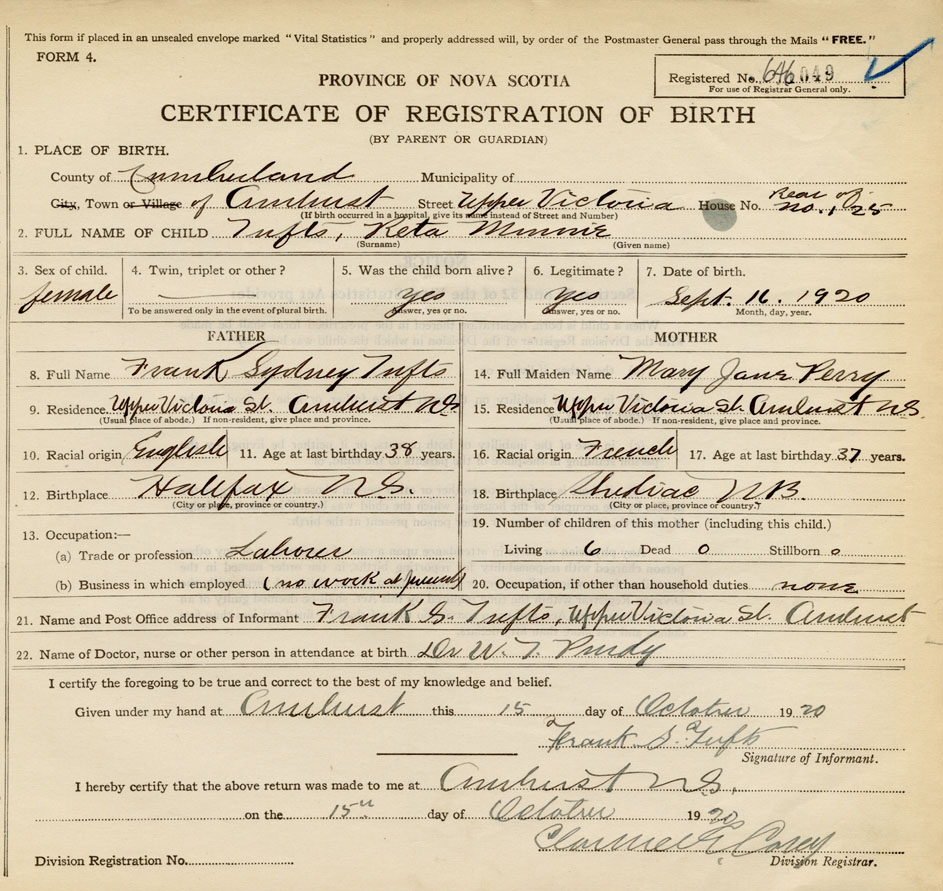 This form if placed in an unsealed envelope marked "Vital Statistics" and properly addressed will, by order of the Postmaster General pass through the Mails "FREE."
FORM 4.
Registered No. 646049
For use of Registrar General only.
PROVINCE OF NOVA SCOTIA
CERTIFICATE OF REGISTRATION OF BIRTH
(BY PARENT OR GUARDIAN)
1. PLACE OF BIRTH.
County of Cumberland Municipality of
City, Town or Village of Amherst Street Upper Victoria House No. Rear of No. 125
(If birth occurred in a hospital, give its name instead of Street and Number)
2. FULL NAME OF CHILD Tufts, Reta Minnie
(Surname) (Given name)
3. Sex of child. 4. Twin, triplet or other? 5. Was the child born alive? 6. Legitimate? 7. Date of birth.
female yes yes Sept. 16. 1920
To be answered only in the event of plural birth. Answer, yes or no. Answer, yes or no. Month, day, year.
FATHER MOTHER
8. Full Name Frank Sydney Tufts 14. Full Maiden Name Mary Jane Perry
9. Residence Upper Victoria St. Amherst N.S. 15. Residence Upper Victoria St. Amherst N.S.
(Usual place of abode.) If non-resident, give place and province. (Usual place of abode.) If non-resident, give place and province.
10. Racial origin English 11. Age at last birthday 38 years. 16. Racial origin French 17. Age at last birthday 37 years.
12. Birthplace Halifax N.S. 18. Birthplace Shediac N.B.
(City or place, province or country.) (City or place, province or country.)
13. Occupation:— 19. Number of children of this mother (including this child.)
(a) Trade or profession Laborer Living 6 Dead 0 Stillborn 0
(b) Business in which employed (no work at present) 20. Occupation, if other than household duties none
21. Name and Post Office address of Informant Frank S. Tufts, Upper Victoria St. Amherst
22. Name of Doctor, nurse or other person in attendance at birth Dr W. T. Purdy
I certify the foregoing to be true and correct to the best of my knowledge and belief.
Given under my hand at Amherst this 15 day of October 1920
Frank S. Tufts
Signature of Informant.
I hereby certify that the above return was made to me at Amherst N.S.
on the 15th day of October 1920
Clarence E. Casey
Division Registration No. Division Registrar.